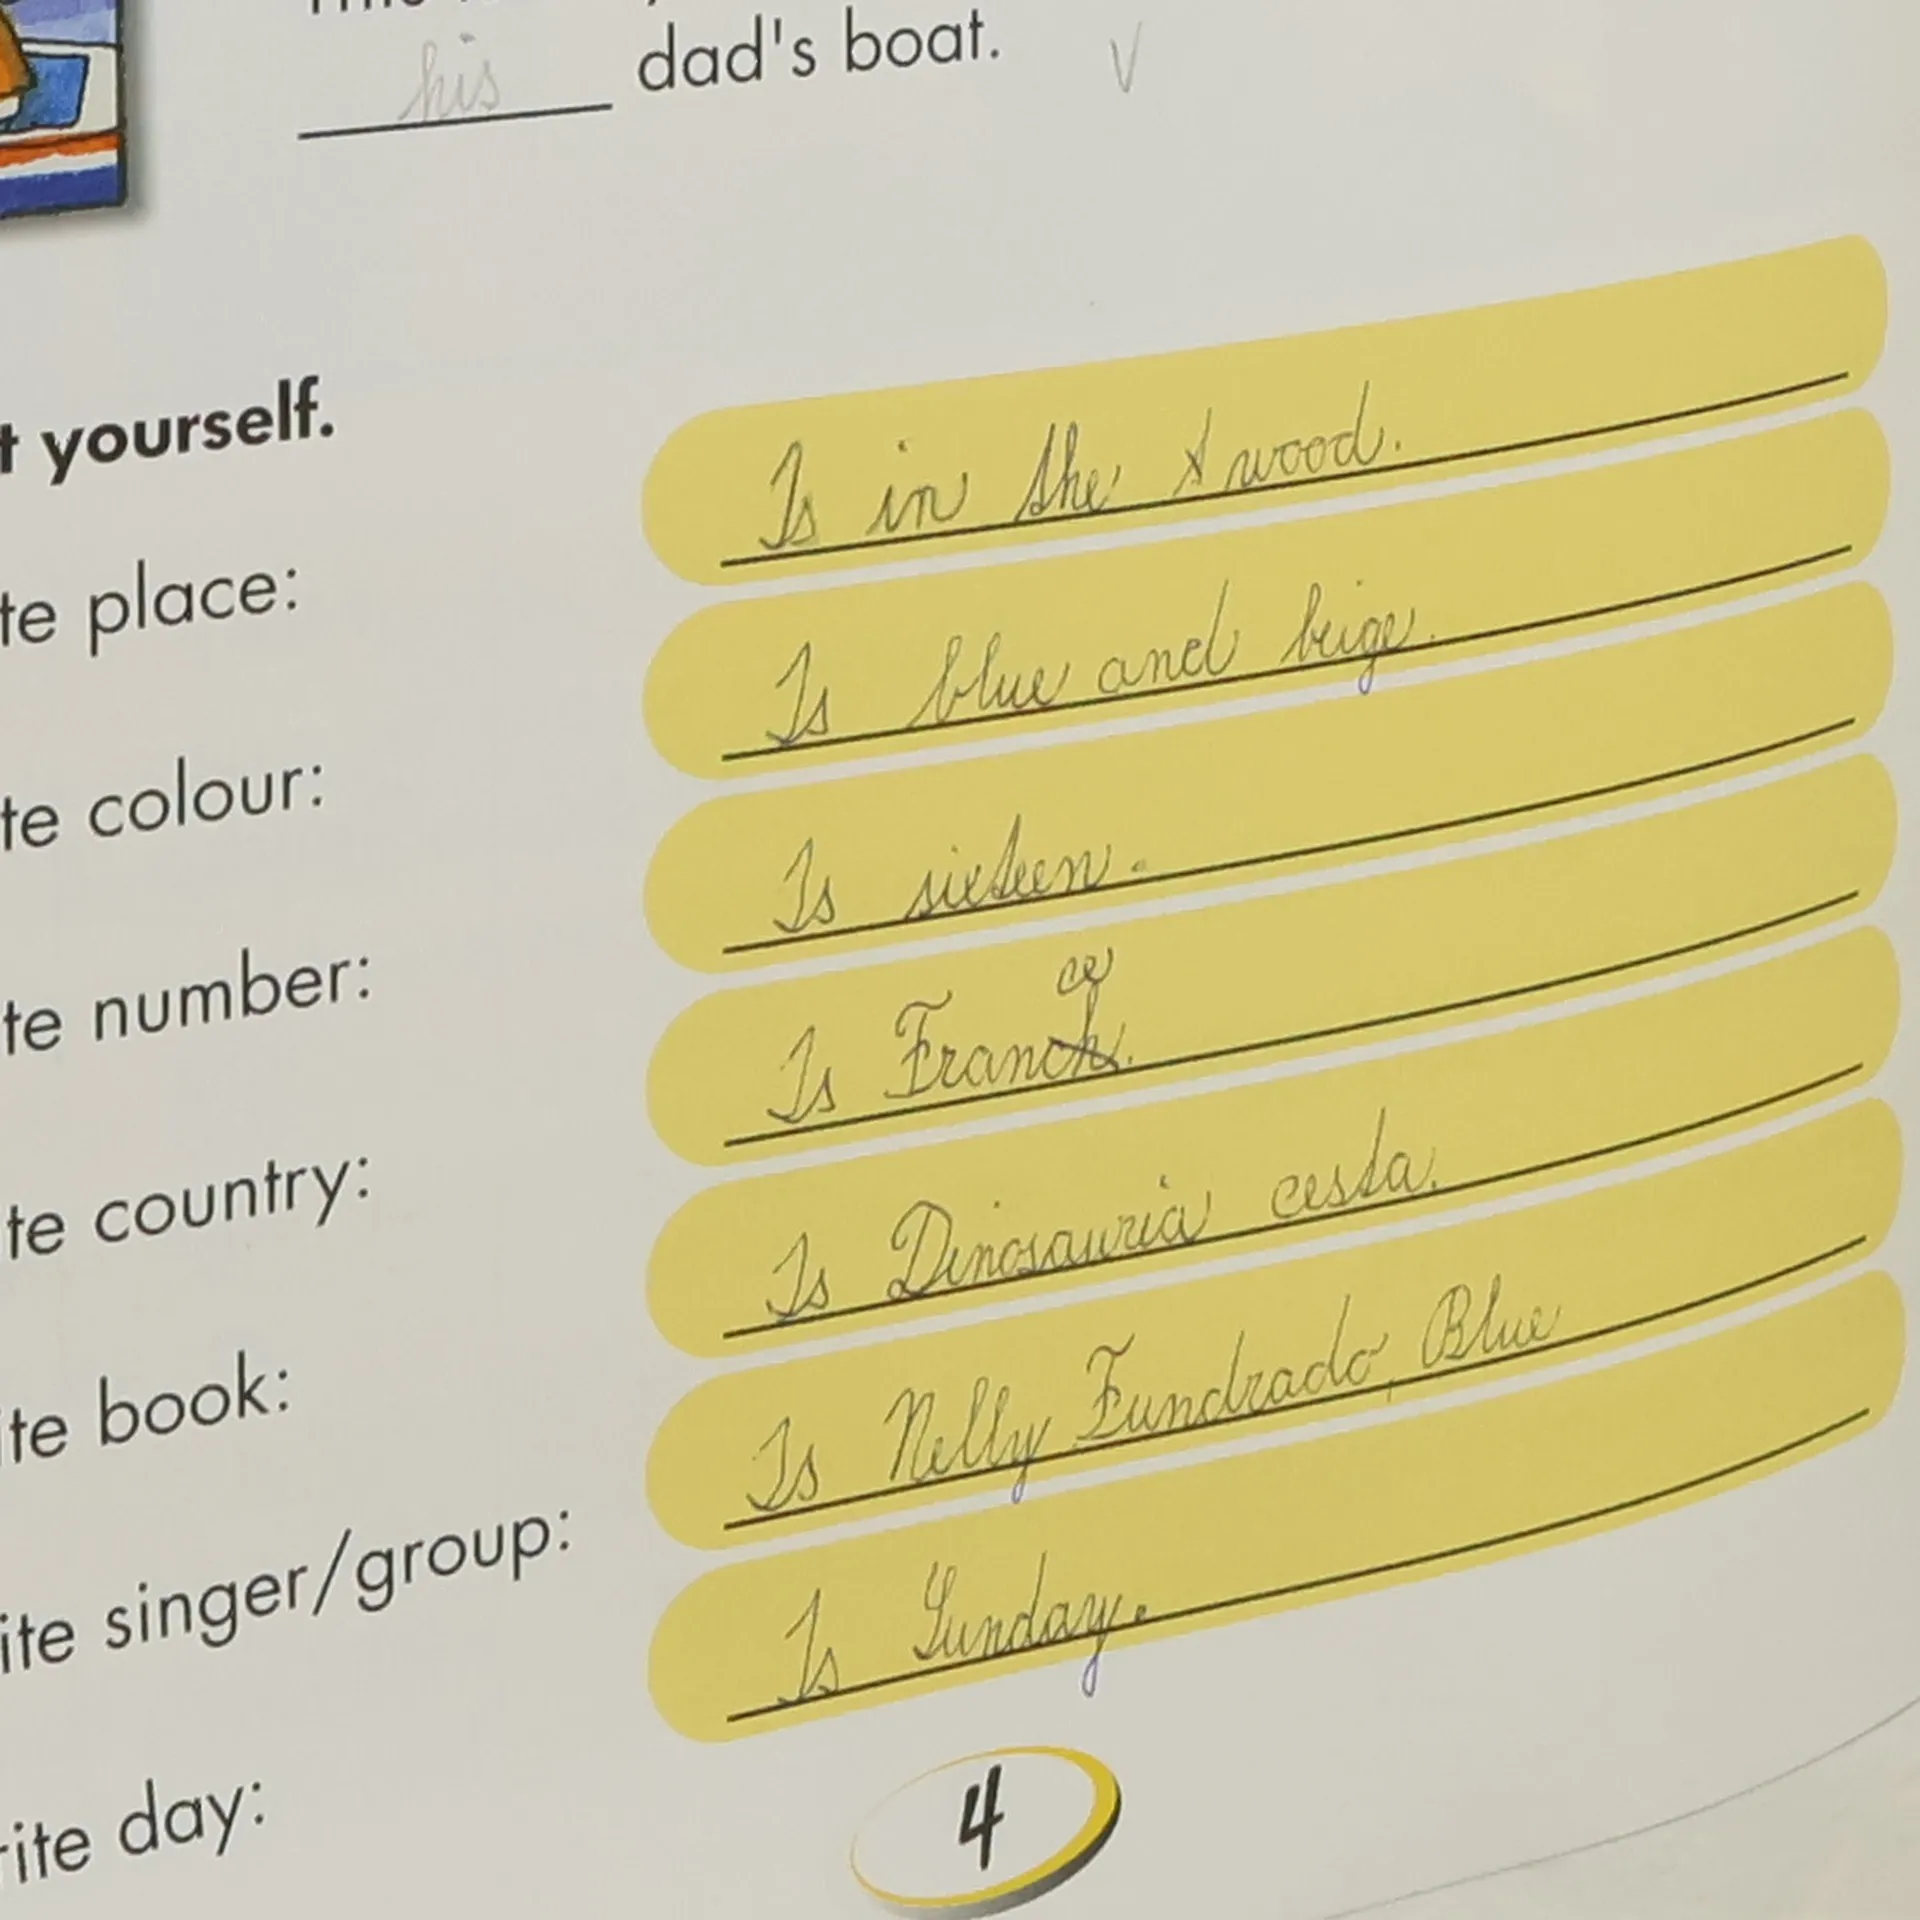 his dad's boat. V
t yourself.
te place: Is in the wood.
te colour: Is blue and beige.
te number: Is sixteen.
te country: Is France.
te book: Is Dinosauria cesta.
ite singer/group: Is Nelly Fundrado, Blue
rite day: Is Sunday.
4